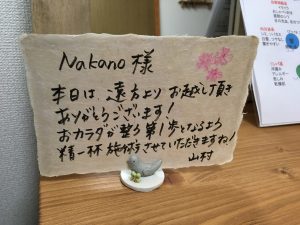 Nakano 様
本日は、遠方より お越し頂き
ありがとうございます！
おカラダが整う第1歩となるよう
精一杯 施術させていただきますね！
山村